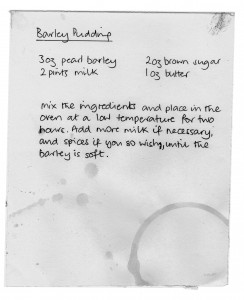 Barley Pudding
3oz pearl barley 2oz brown sugar
2 pints milk 1oz butter
Mix the ingredients and place in the
oven at a low temperature for two
hours. Add more milk if necessary,
and spices if you so wish, until the
barley is soft.